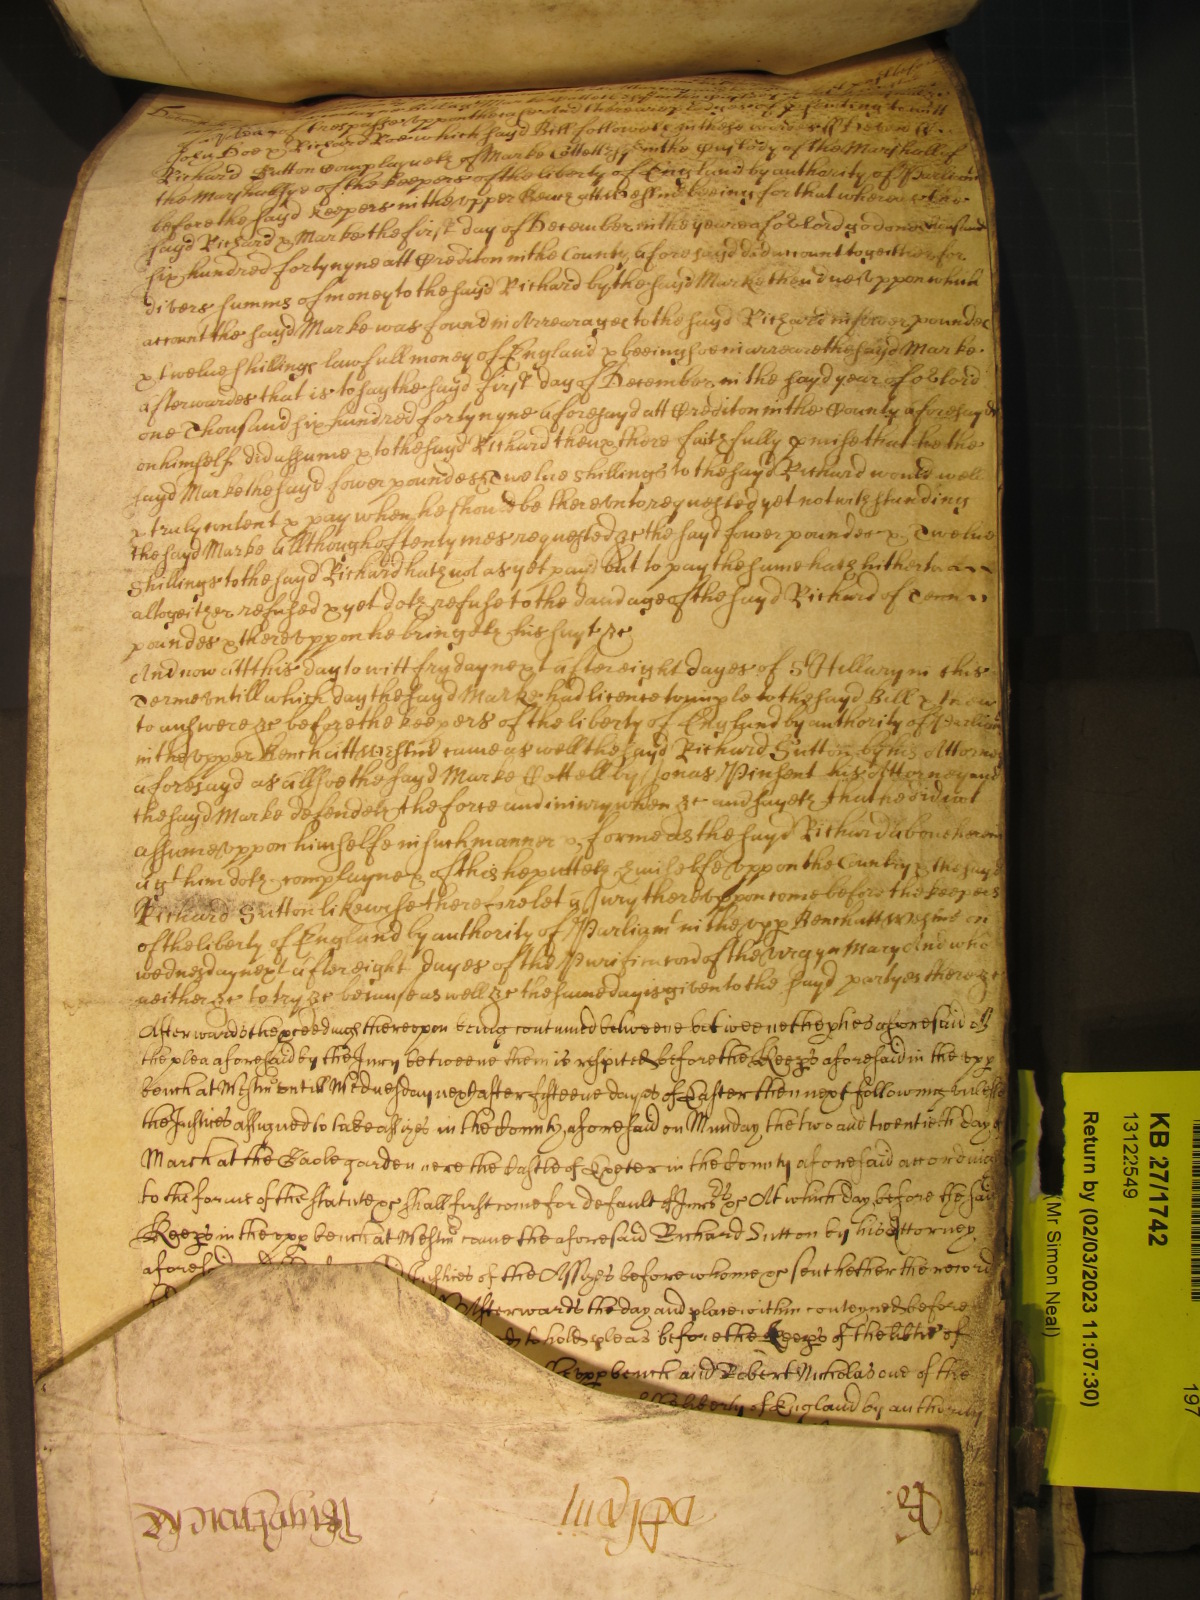 plea of trespas uppon the case And there are pledges of p'senting to witt
John Doe & Richard Roe which sayd Bill followeth in these wordes ss Devon ss
Richard Sutton complayneth of Marke Cottell in the Custody of the Marshall of
the Marshalsye of the keepers of the liberty of England by authority of Parliam
before the sayd keepers in the upper Bench att Westm beeing for that whereas the
sayd Richard & Marke the first day of December in the yeare of o'r Lord god one thousand
six hundred forty nyne att Crediton in the County aforesayd did account together for
divers summs of money to the sayd Richard by the sayd Marke then due uppon which
account the sayd Marke was found in Arrearages to the sayd Richard in fower poundes
& twelve shillings lawfull money of England & beeing soe in arreare the sayd Marke
afterwardes that is to say the sayd first day of December in the sayd year of o'r Lord
one Thousand six hundred forty nyne aforesayd att Crediton in the County aforesayd
on himself did assume & to the sayd Richard then & there faithfully p'mise that he the
sayd Marke the sayd fower poundes & Twelve shillings to the sayd Richard would well
& truly content & pay when he should be thereunto requested yet notwithstanding
the sayd Marke allthough oftentymes requested &c the sayd fower poundes & Twelve
Shillings to the sayd Richard hath not as yet payd but to pay the same hath hitherto
altogeither refused & yet doth refuse to the damage of the sayd Richard of Tenn
poundes & thereuppon he bringeth his suyt &c
And now att this day to witt fryday next after eight dayes of St Hillary in this
Terme untill which day the sayd Marke had licence to imple to the sayd Bill & then
to answere &c before the keepers of the liberty of England by authority of Parliam
in the upper Bench att Westm came as well the sayd Richard Sutton by his Attorney
aforesayd as allsoe the sayd Marke Cottell by Jonas Pinsent his Attorney and
the sayd Marke defendeth the force and iniury when &c and sayeth that he did not
assume uppon himselfe in such manner & forme as the sayd Richard above herein
ag't him doth complayne & of this he putteth himselfe uppon the Country & the sayd
Richard Sutton likewise therefore let a Jury thereuppon come before the keepers
of the liberty of England by authority of Parliam't in the upp Bench att Westm on
wednesday next after eight dayes of the Purificacion of the Virgyn Mary And who
neither &c to try &c because as well &c the same day is given to the sayd partyes there &c
Afterwards the p'ceedings thereupon being continued betweene betweene the p'ties aforesaid of
the plea aforesaid by the Jury betweene them is respited before the Keep's aforesaid in the upp
bench at Westm' untill Wednesday next after fifteene dayes of Easter then next following unlesse
the Justices assigned to take assizes in the County aforesaid on Munday the two and twentieth day of
March at the Castle garden nere the Castle of Exeter in the County aforesaid according
to the forme of the statute &c shall first come for default of Juro's &c At which day before the said
Keep's in the upp bench at Westm' came the aforesaid Richard Sutton by his attorney
aforesd Justices of the Assizes before whome &c sent hether the record
Afterwards the day and place within conteyned before
to hold pleas before the Keep's of the lib'tie of
upp bench and Robert Nicholas one of the
liberty of England by authority
KB 27/1742
13122549
Return by (02/03/2023 11:07:30)
(Mr Simon Neal)
197